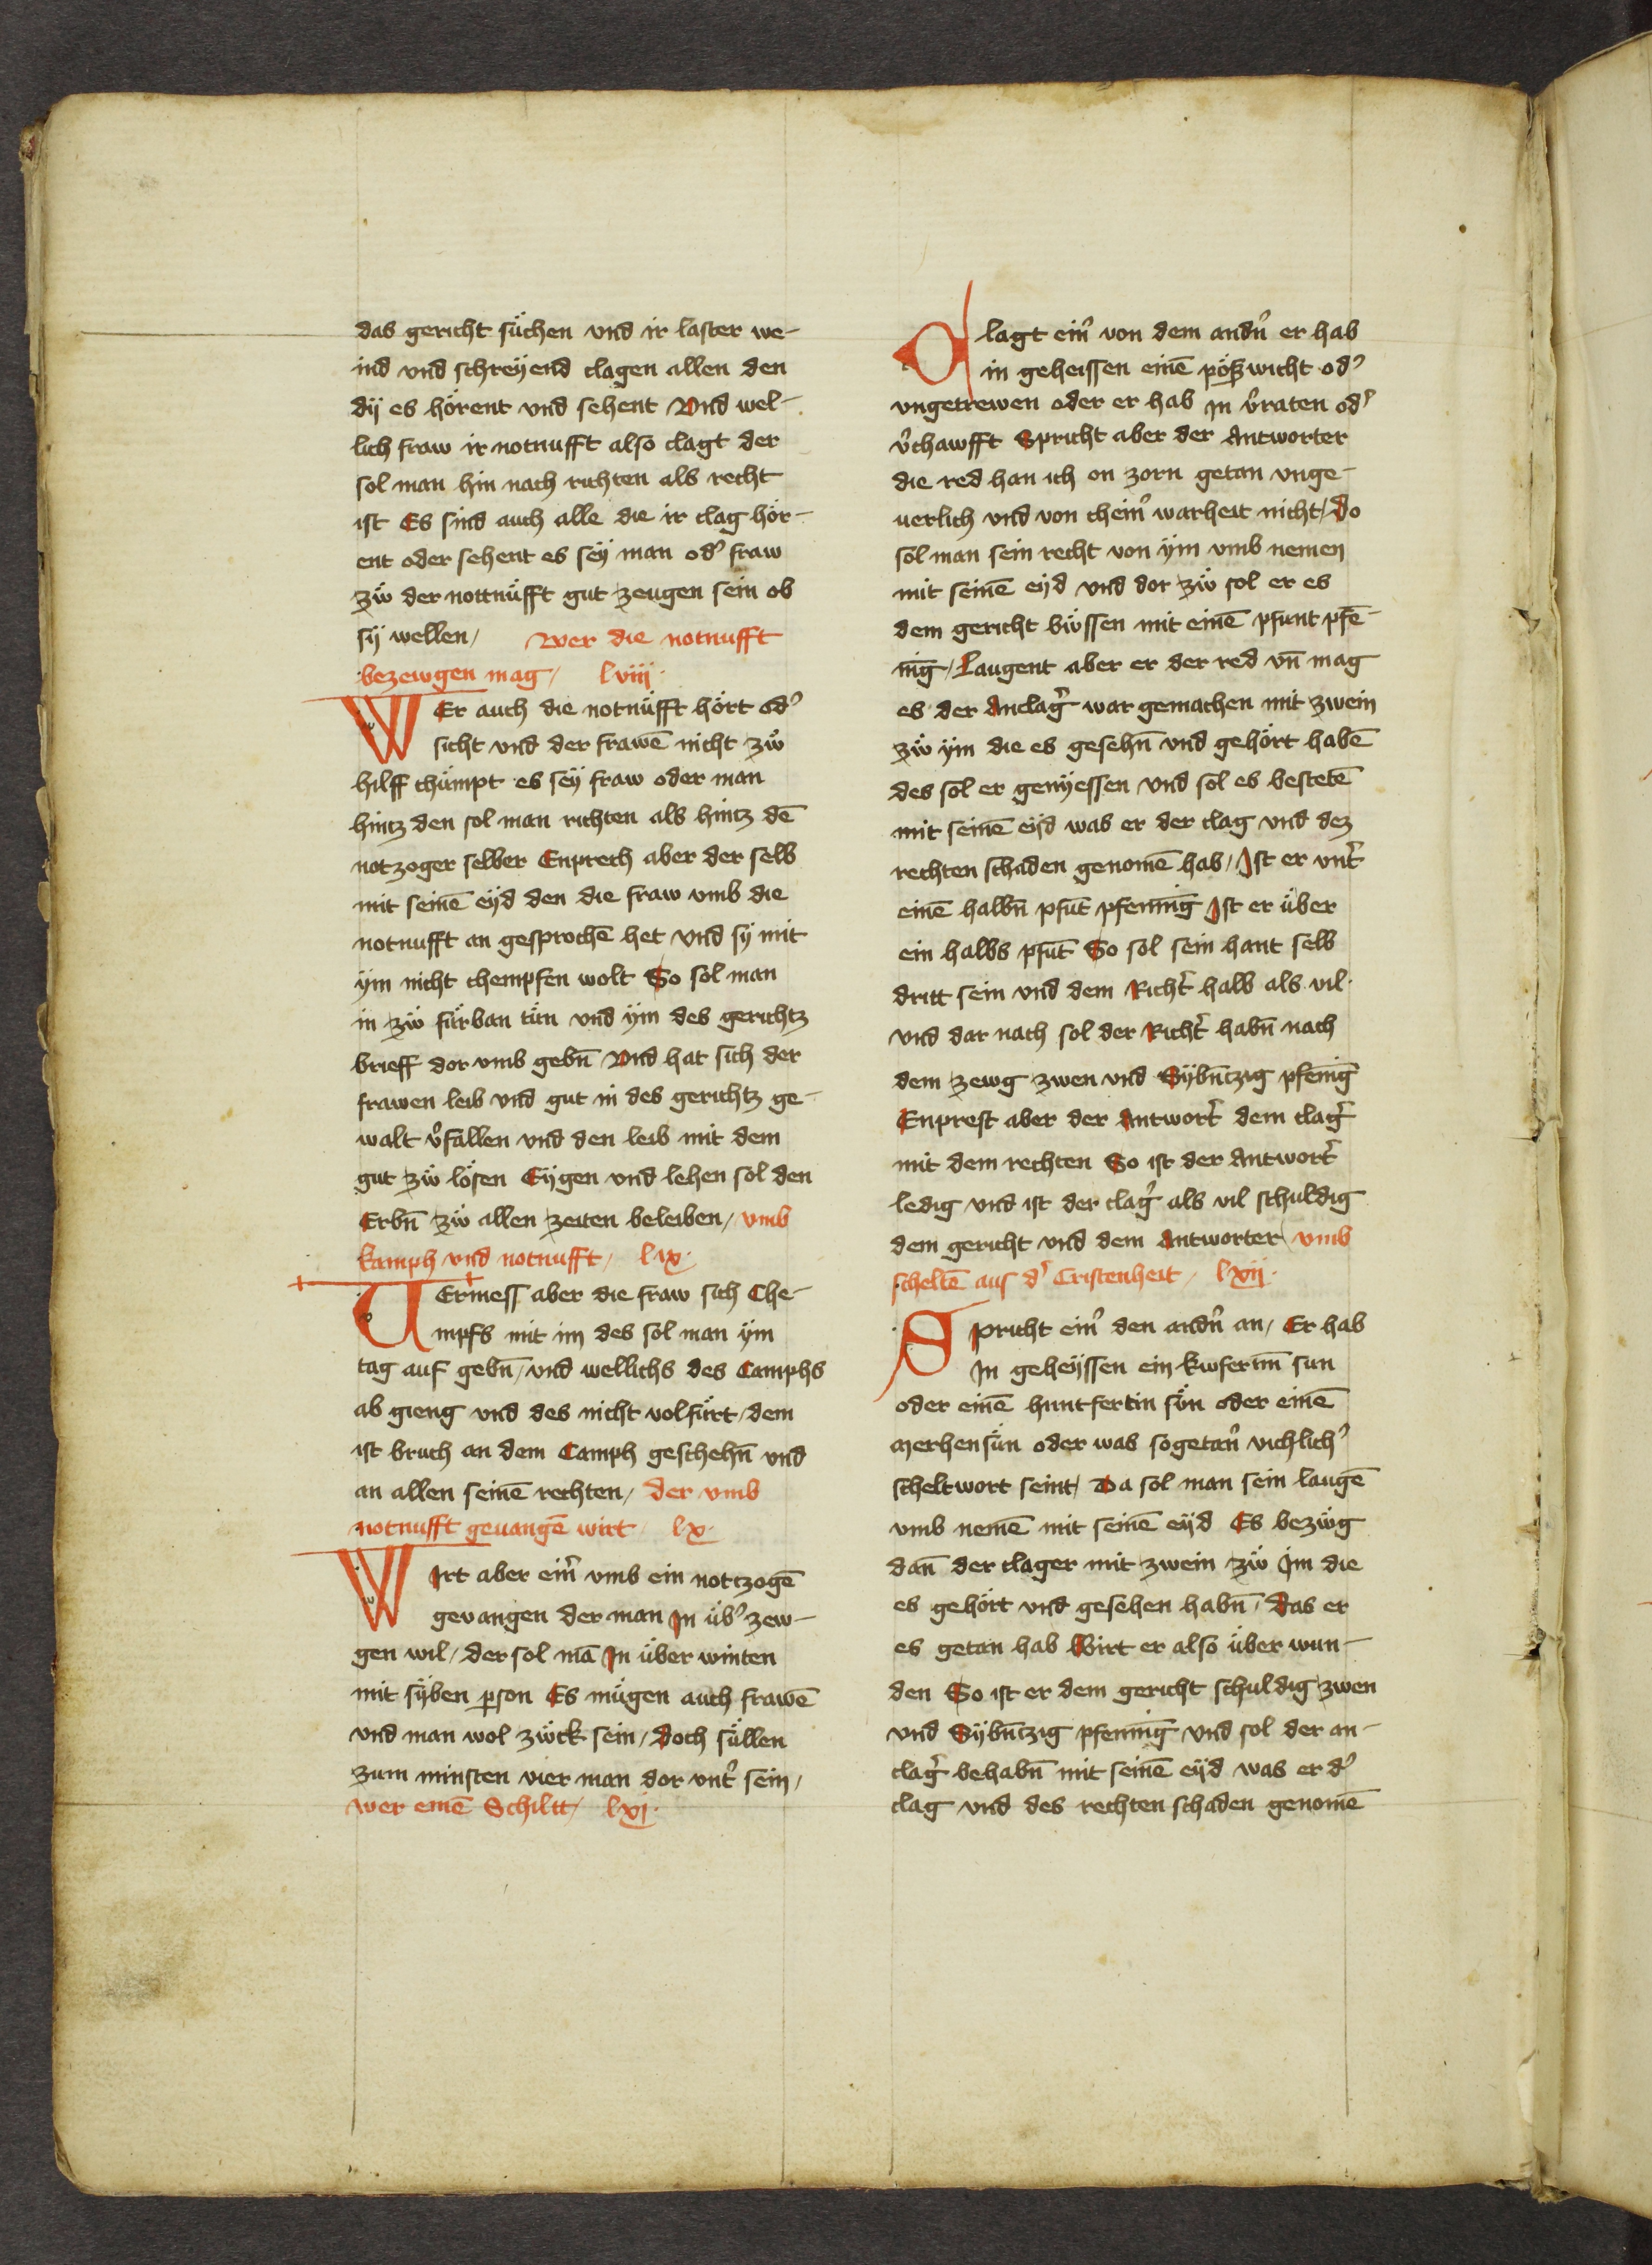 das gericht sůchen vnd ir laster we-
ind vnd schreÿend clagen allen den
dÿ es hörent vnd sehent Vnd wel-
lich fraw ir notnufft also clagt der
sol man hin nach richten als recht
ist Es sind auch alle die ir clag hör-
ent oder sehent es seÿ man od̾ fraw
zẅ der nottnüfft gut zeugen sein ob
sÿ wellen / Wer die notnufft
bezewgen mag / lviij·
WEr auch die notnüfft hört od̾
sicht vnd der frawē nicht zẅ
hilff chümpt es seÿ fraw oder man
hintz den sol man richten als hintz dē
notzoger selber Enprech aber der selb
mit seinē eÿd den die fraw vmb die
notnufft an gesprochē het vnd sÿ mit
ÿm nicht chempfen wolt So sol man
in zẅ fürban tün vnd ÿm des gerichtz
brieff dor vmb gebn̄ Vnd hat sich der
frawen leib vnd gut in des gerichtz ge-
walt v̾fallen vnd den leib mit dem
gut zẅ lösen Eÿgen vnd lehen sol den
Erbn̄ zẅ allen zeiten beleiben / vmb
kamph vnd notnufft / lix·
VErmess aber die fraw sich Che-
mpfs mit im des sol man ÿm
tag auf gebn̄ / vnd wellichs des Camphs
ab gieng vnd des nicht volfürt / dem
ist bruch an dem Camph geschehn̄ vnd
an allen seinē rechten / der vmb
notnufft geuangē wirt lx·
WIrt aber ein̾ vmb ein notzogē
gevangen der man In üb̾ zew-
gen wil / der sol mā In über winten
mit sÿben ꝑson Es mügen auch frawē
vnd man wol zẅck sein / Doch süllen
zum minsten vier man dor vnt̾ sein /
wer einē Schiltt / lxj·
Clagt ein̾ von dem andn̾ er hab
in geheissen einē pößwicht od̾
vngetrewen oder er hab In v̾raten od̾
v̾chawfft Spricht aber der Antworter
die red han ich on zorn getan vnge-
uerlich vnd von chein̾ warheit nicht / Do
sol man sein recht von ÿm vmb nemen
mit seinē eÿd vnd dor zẅ sol er es
dem gericht bẅssen mit einē pfunt pfē-
nīg / Laugent aber er der red vn̄ mag
es der Anclag̾ war gemachen mit zwein
zẅ ÿm die es gesehn̄ vnd gehört habē
des sol er genÿessen vnd sol es bestetē
mit seinē eÿd was er der clag vnd dez
rechten schaden genomē hab / Ist er vnt̾
einē halbn̄ pfūt pfennīg Ist er über
ein halbs pfūt So sol sein hant selb
dritt sein vnd dem Richt̾ halb als vil·
vnd dar nach sol der Richt̾ habn̄ nach
dem zewg zwen vnd Sÿbn̄tzig pfenīg
Enprest aber der Antwort̾ dem clag̾
mit dem rechten So ist der Antwort̾
ledig vnd ist der clag̾ als vil schuldig
dem gericht vnd dem Antworter / vmb
scheltē aus d̾ Cristenheit / lxij·
Spricht ein̾ den andn̾ an / Er hab
In geheÿssen ein kwferinn sun
oder einē huntfertin sün oder einē
merhensün oder was sogetan̾ vichlich̾
scheltwort seint / Da sol man sein laugē
vmb nemē mit seinē eÿd Es bezẅg
dan̄ der clager mit zwein zẅ Im die
es gehört vnd gesehen habn̄ / Das er
es getan hab Wirt er also über wun-
den So ist er dem gericht schuldig zwen
vnd Sÿbn̄tzig pfennīg vnd sol der an-
clag̾ behabn̄ mit seinē eÿd was er d̾
clag vnd des rechten schaden genomē